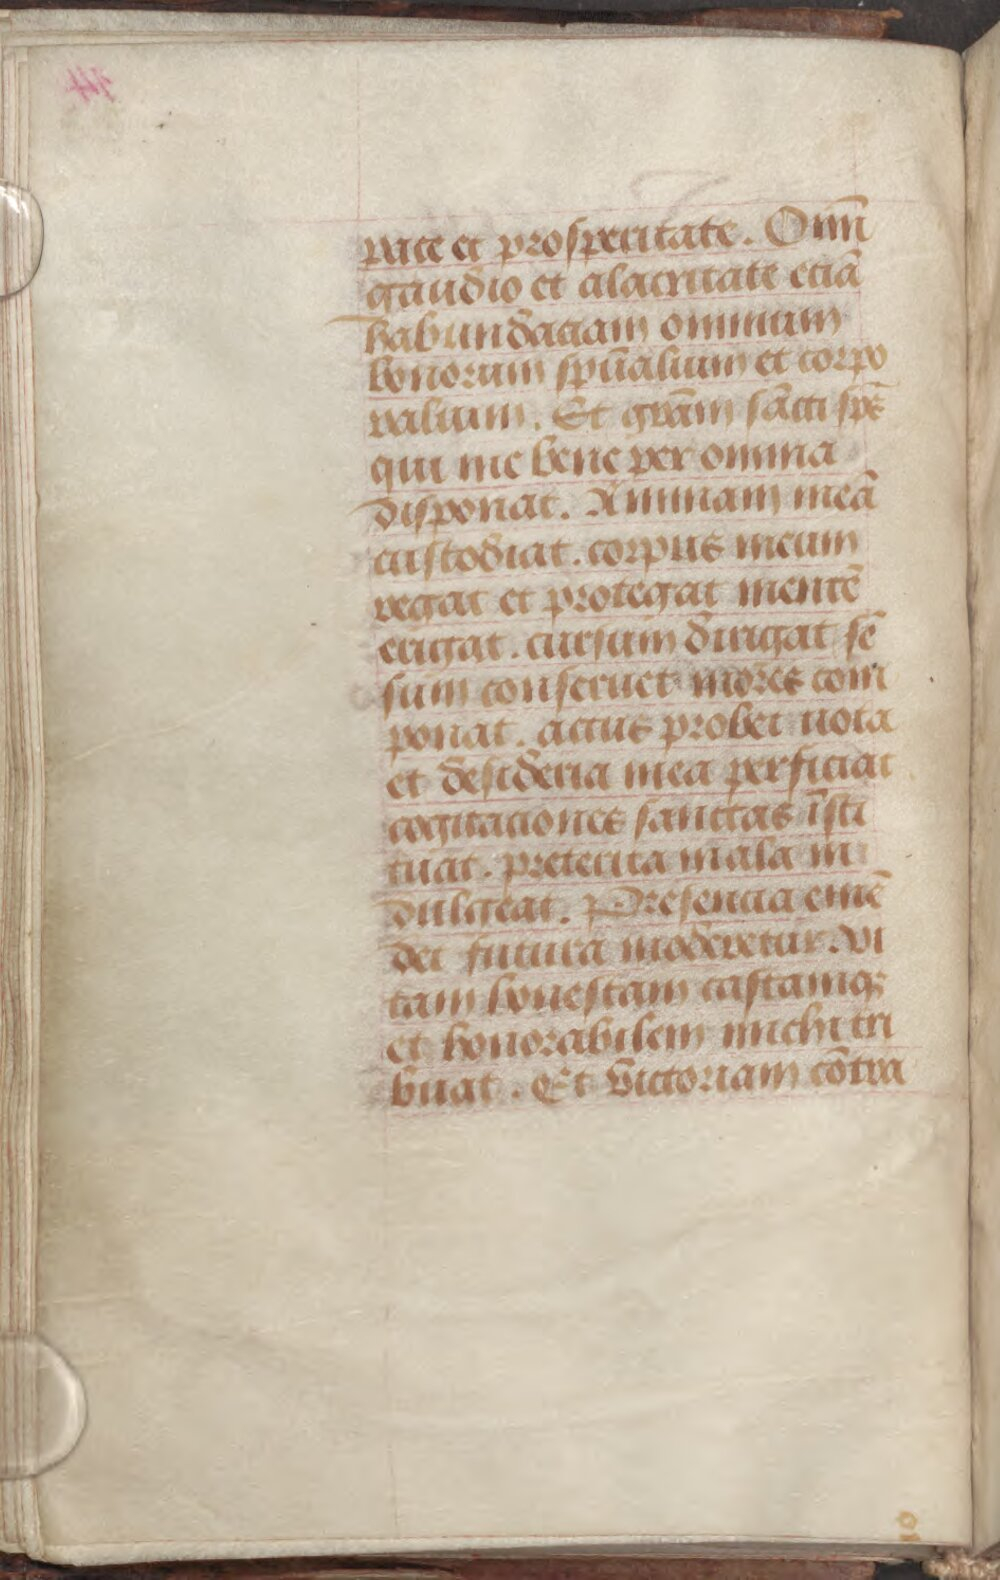 pace et prosperitate. Omī
gaudio et alacritate eciā
habundāciam omnium
bonorum spūalium et corpo
ralium. Et grām sācti spē
qui me bene per omnia
disponat. Animam meā
custodiat. corpus meum
regat et protegat mentē
erigat. cursum dirigat sē
sum conseruet mores com
ponat. actus probet uota
et desideria mea perficiat
cogitaciones sanctas īsti
tuat. preterita mala in
dulgeat. Presencia emē
det futura moderetur. vi
tam honestam castamqꝫ
et honorabilem michi tri
buat. Et victoriam cōtra